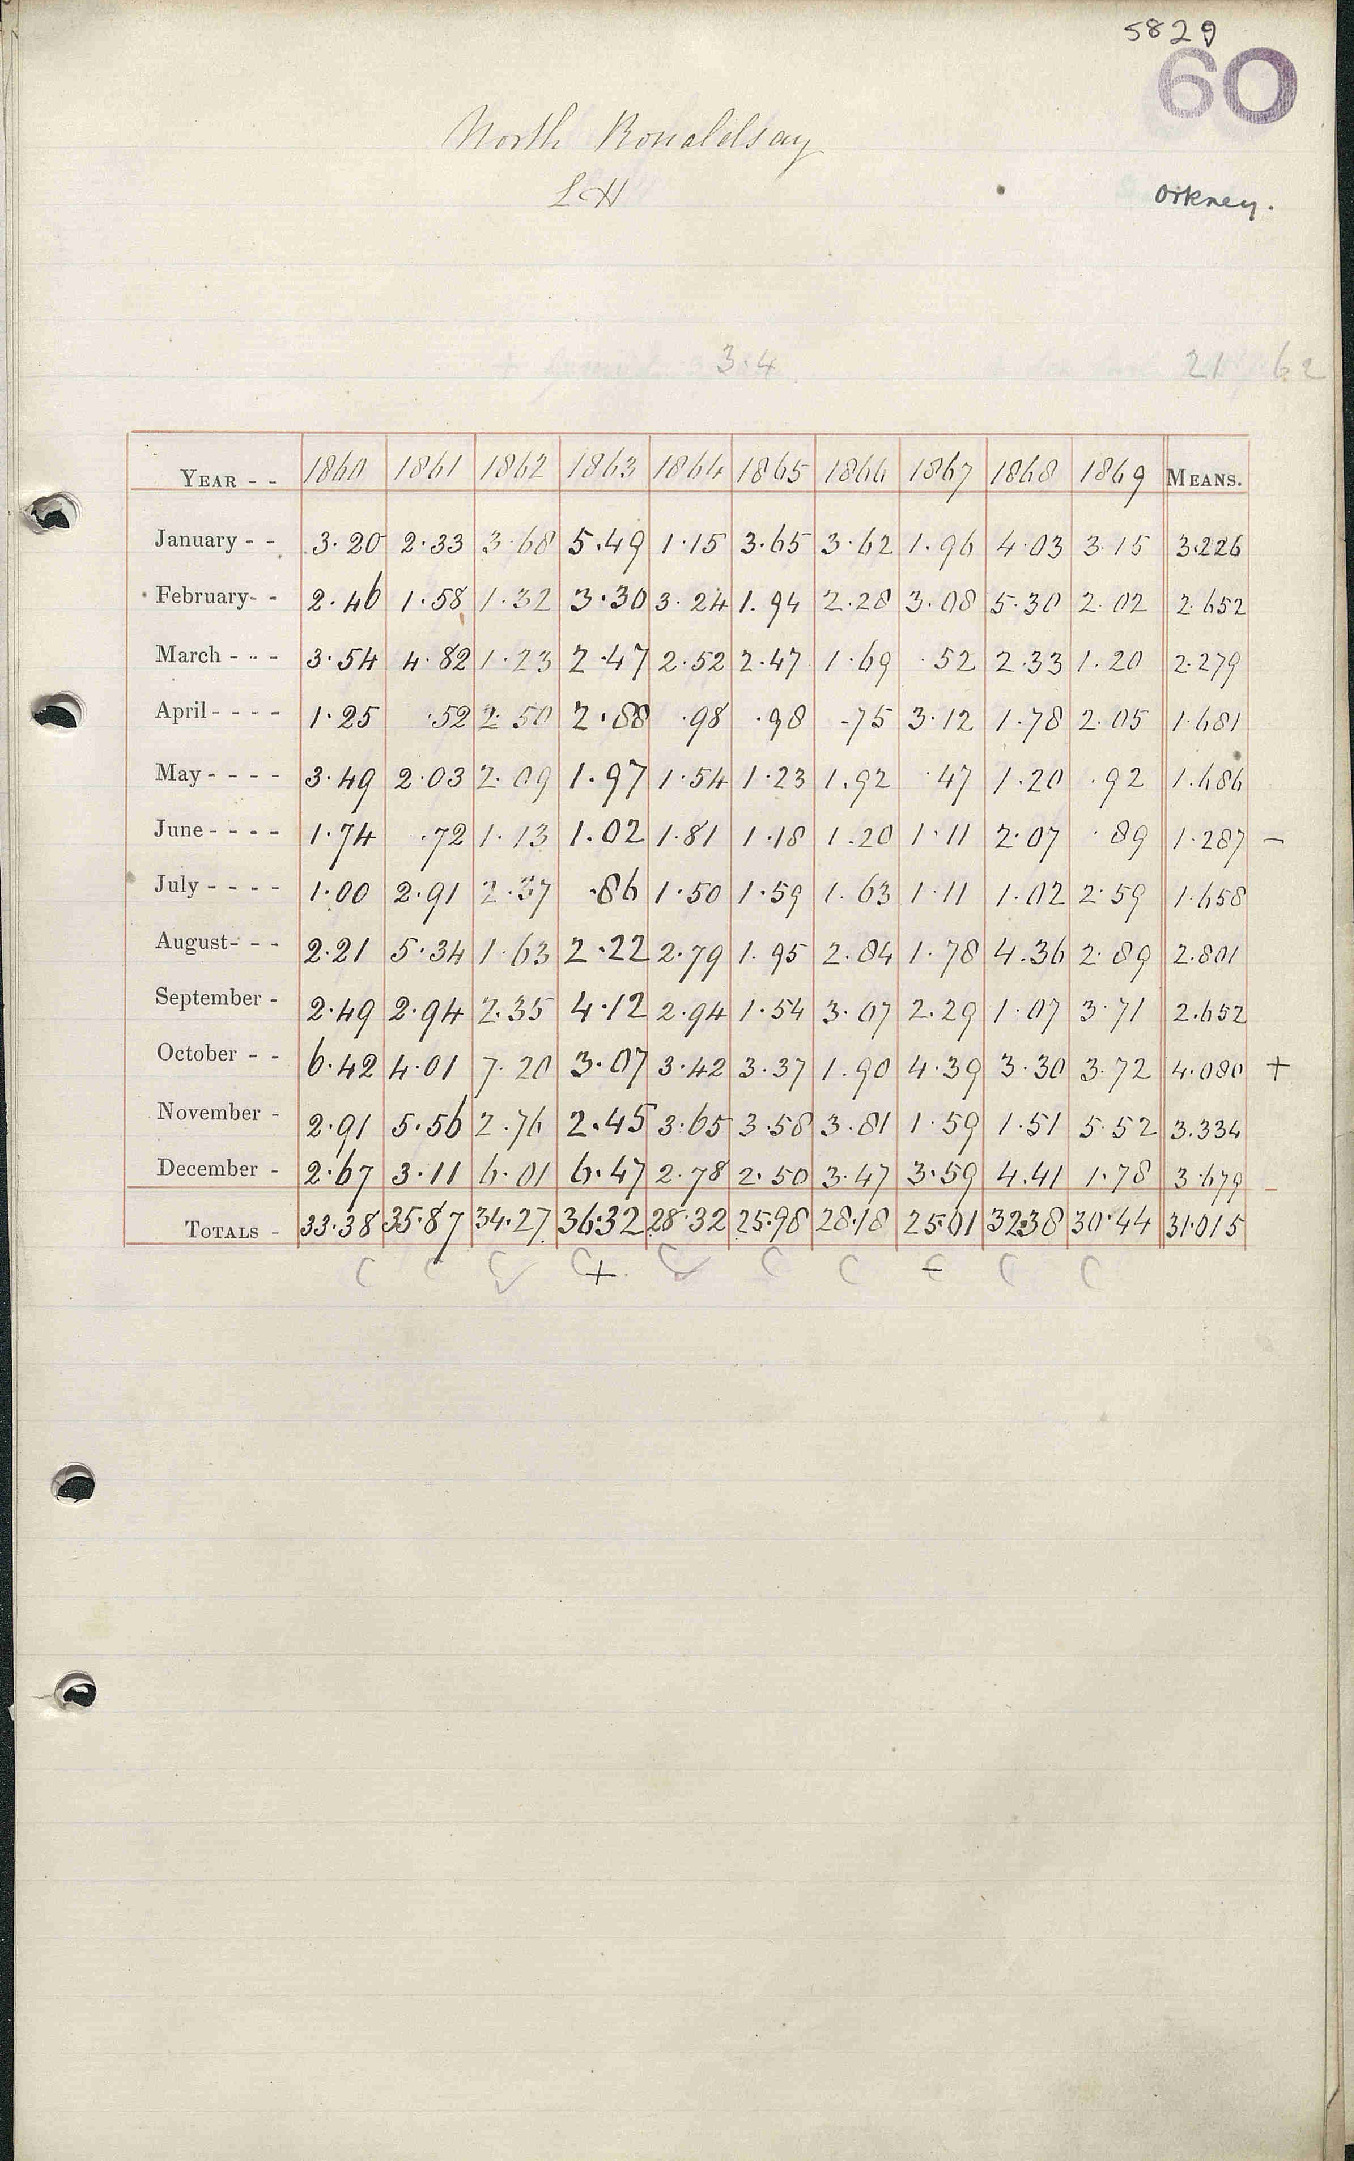 5829
60
North Ronaldsay
LH
Orkney.
3.4
21 62
YEAR - - 1860 1861 1862 1863 1864 1865 1866 1867 1868 1869 MEANS.
January - - 3.20 2.33 3.68 5.49 1.15 3.65 3.62 1.96 4.03 3.15 3.226
February- - 2.46 1.58 1.32 3.30 3.24 1.94 2.28 3.08 5.30 2.02 2.652
March - - - 3.54 4.82 1.23 2.47 2.52 2.47 1.69 .52 2.33 1.20 2.279
April - - - - 1.25 .52 2.50 2.88 .98 .98 .75 3.12 1.78 2.05 1.681
May - - - - 3.49 2.03 2.09 1.97 1.54 1.23 1.92 .47 1.20 .92 1.686
June - - - - 1.74 .72 1.13 1.02 1.81 1.18 1.20 1.11 2.07 .89 1.287 -
July - - - - 1.00 2.91 2.37 .86 1.50 1.59 1.63 1.11 1.02 2.59 1.658
August- - - 2.21 5.34 1.63 2.22 2.79 1.95 2.84 1.78 4.36 2.89 2.801
September - 2.49 2.94 2.35 4.12 2.94 1.54 3.07 2.29 1.07 3.71 2.652
October - - 6.42 4.01 7.20 3.07 3.42 3.37 1.90 4.39 3.30 3.72 4.080 +
November - 2.91 5.56 2.76 2.45 3.65 3.58 3.81 1.59 1.51 5.52 3.334
December - 2.67 3.11 6.01 6.47 2.78 2.50 3.47 3.59 4.41 1.78 3.679
TOTALS - 33.38 35.87 34.27 36.32 28.32 25.98 28.18 25.01 32.38 30.44 31.015
C C C C + C C C C C C